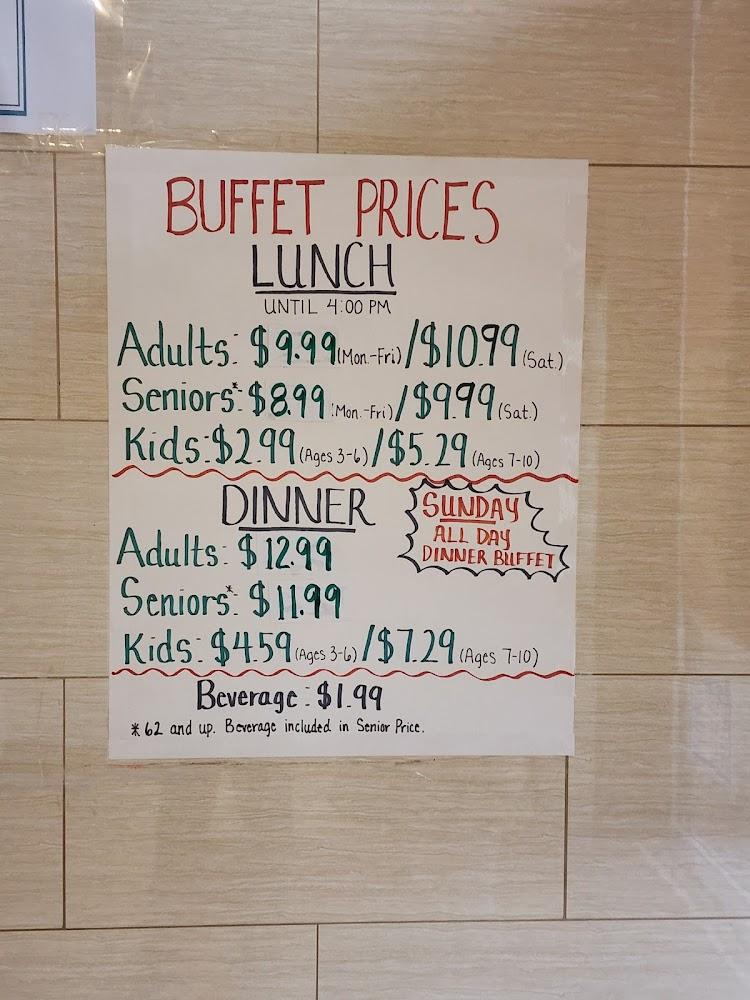 BUFFET PRICES
LUNCH
UNTIL 4:00 PM
Adults: $9.99 (Mon.-Fri) / $10.99 (Sat.)
Seniors*: $8.99 (Mon.-Fri) / $9.99 (Sat.)
Kids: $2.99 (Ages 3-6) / $5.29 (Ages 7-10)
DINNER
SUNDAY
ALL DAY
DINNER BUFFET
Adults: $12.99
Seniors*: $11.99
Kids: $4.59 (Ages 3-6) / $7.29 (Ages 7-10)
Beverage: $1.99
*62 and up. Beverage included in Senior Price.